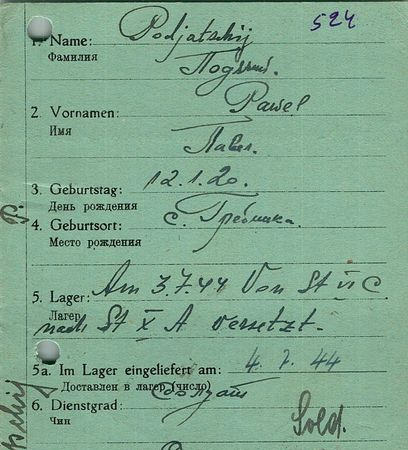 524
1. Name: Podjatschij
Фамилия
Подячий.
2. Vornamen: Pawel
Имя
Павел.
3. Geburtstag: 12.1.20.
День рождения
4. Geburtsort: с. Гребинка.
Место рождения
5. Lager: Am 3.7.44 Von St VI C
Лагер
nach St X A versetzt.
5a. Im Lager eingeliefert am: 4.7.44
Доставлен в лагер (число)
6. Dienstgrad:
Чин
Sold.